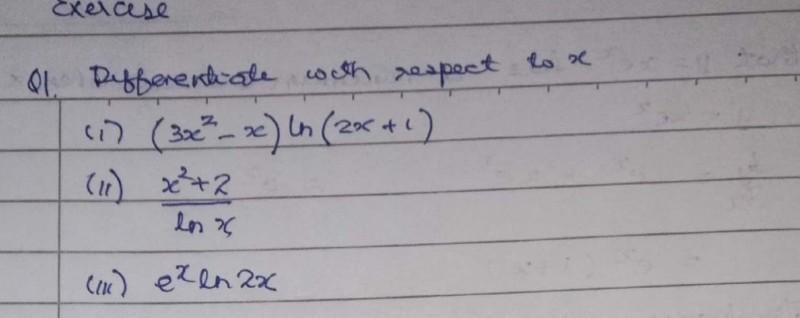 Exercise
Q1. Differentiate with respect to x
(i) (3x² - x) ln (2x + 1)
(ii) x² + 2
ln x
(iii) eˣ ln 2x